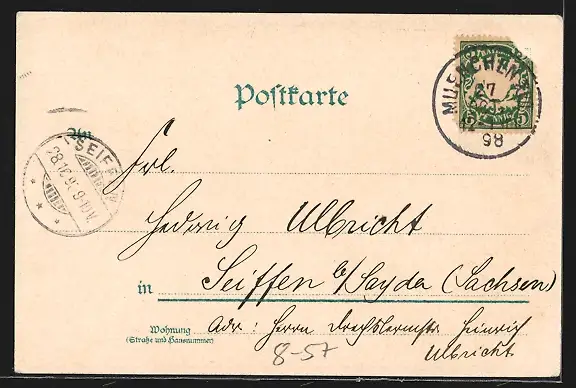 Postkarte
An
MUENCHEN
27
98
5
SEIFFEN
28 10 98
Frl.
Hedwig Ulbricht
in Seiffen b/Sayda (Sachsen)
Wohnung
(Straße und Hausnummer)
Adr: Herrn Drechslermstr Heinrich
Ulbricht
8-57